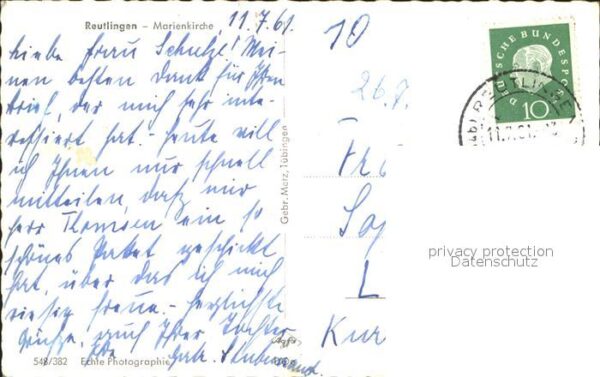 Reutlingen – Marienkirche
11.7.61
Liebe Frau Schulze! Mei-
nen besten Dank für Ihren
Brief, der mich sehr inte-
ressiert hat. - Heute will
ich Ihnen nur schnell
mitteilen, daß mir
Herr Thomsen ein so
schönes Paket geschickt
hat, über das ich mich
riesig freue. - Herzlichste
Grüße, auch Ihrer Tochter
Ihre
548/382 Echte Photographie
Gebr. Metz, Tübingen
10
26.7.
DEUTSCHE BUNDESPOST
10
REUTLINGEN
11.7.61
privacy protection
Datenschutz